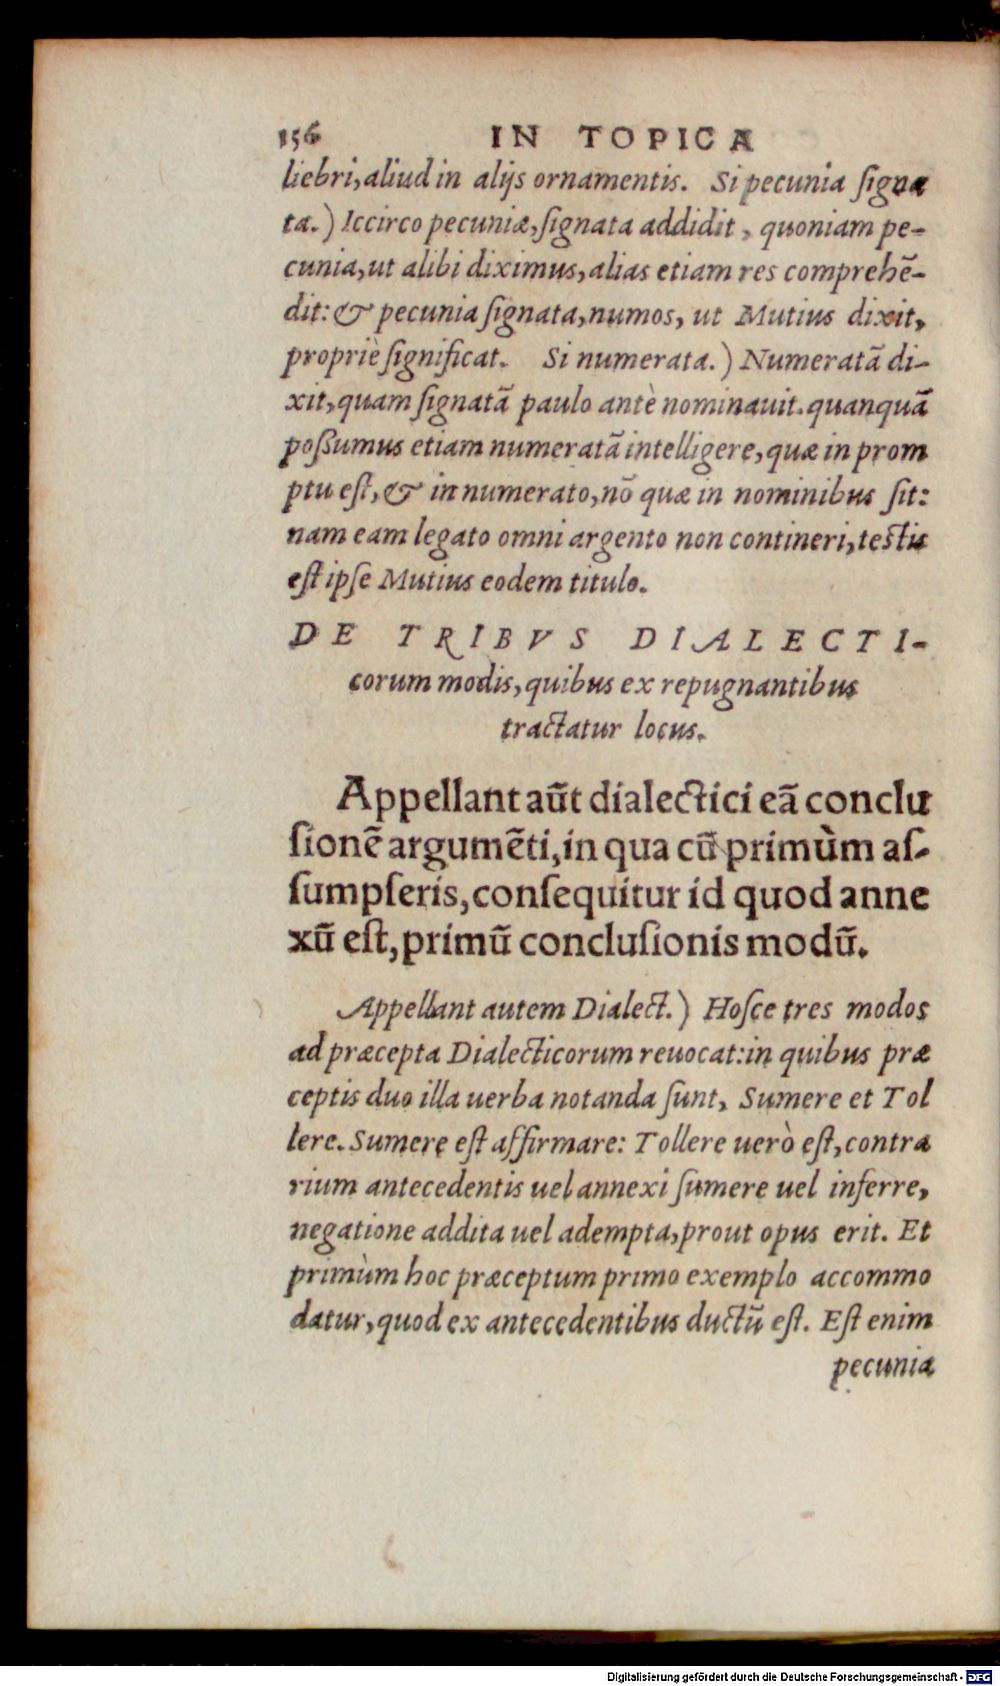 156 IN TOPICA
liebri, aliud in alijs ornamentis. Si pecunia signa
ta.) Iccirco pecuniæ, signata addidit, quoniam pe-
cunia, ut alibi diximus, alias etiam res comprehẽ-
dit: & pecunia signata, numos, ut Mutius dixit,
propriè significat. Si numerata.) Numeratã di-
xit, quam signatã paulo antè nominauit. quanquã
poßumus etiam numeratã intelligere, quæ in prom
ptu est, & in numerato, nõ quæ in nominibus sit:
nam eam legato omni argento non contineri, testis
est ipse Mutius eodem titulo.
DE TRIBVS DIALECTI-
corum modis, quibus ex repugnantibus
tractatur locus.
Appellant aũt dialectici eã conclu
sionẽ argumẽti, in qua cũ primùm as-
sumpseris, consequitur id quod anne
xũ est, primũ conclusionis modũ.
Appellant autem Dialect.) Hosce tres modos
ad præcepta Dialecticorum reuocat: in quibus præ
ceptis duo illa uerba notanda sunt, Sumere et Tol
lere. Sumere est affirmare: Tollere uerò est, contra
rium antecedentis uel annexi sumere uel inferre,
negatione addita uel adempta, prout opus erit. Et
primùm hoc præceptum primo exemplo accommo
datur, quod ex antecedentibus ductũ est. Est enim
pecunia
Digitalisierung gefördert durch die Deutsche Forschungsgemeinschaft - DFG